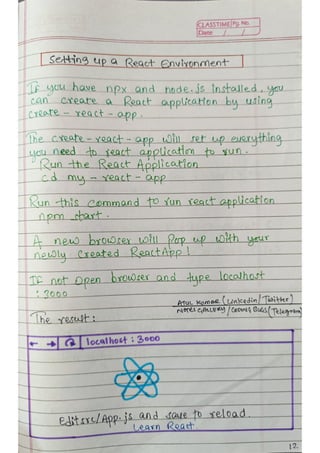 CLASSTIME Pg. No.
Date / /
Setting up a React Environment
If you have npx and node.js installed, you
can create a React application by using
create - react - app.
The create - react - app will set up everything
you need to react application to run.
Run the React Application
cd my - react - app
Run this command to run react application
npm start.
A new browser will pop up with your
newly created ReactApp!
If not open browser and type localhost
: 3000
Atul Kumar (Linkedin/Twitter)
Notes Gallery / Coding Bugs (Telegram)
The result:
localhost : 3000
Edit src/App.js and save to reload.
Learn React
12